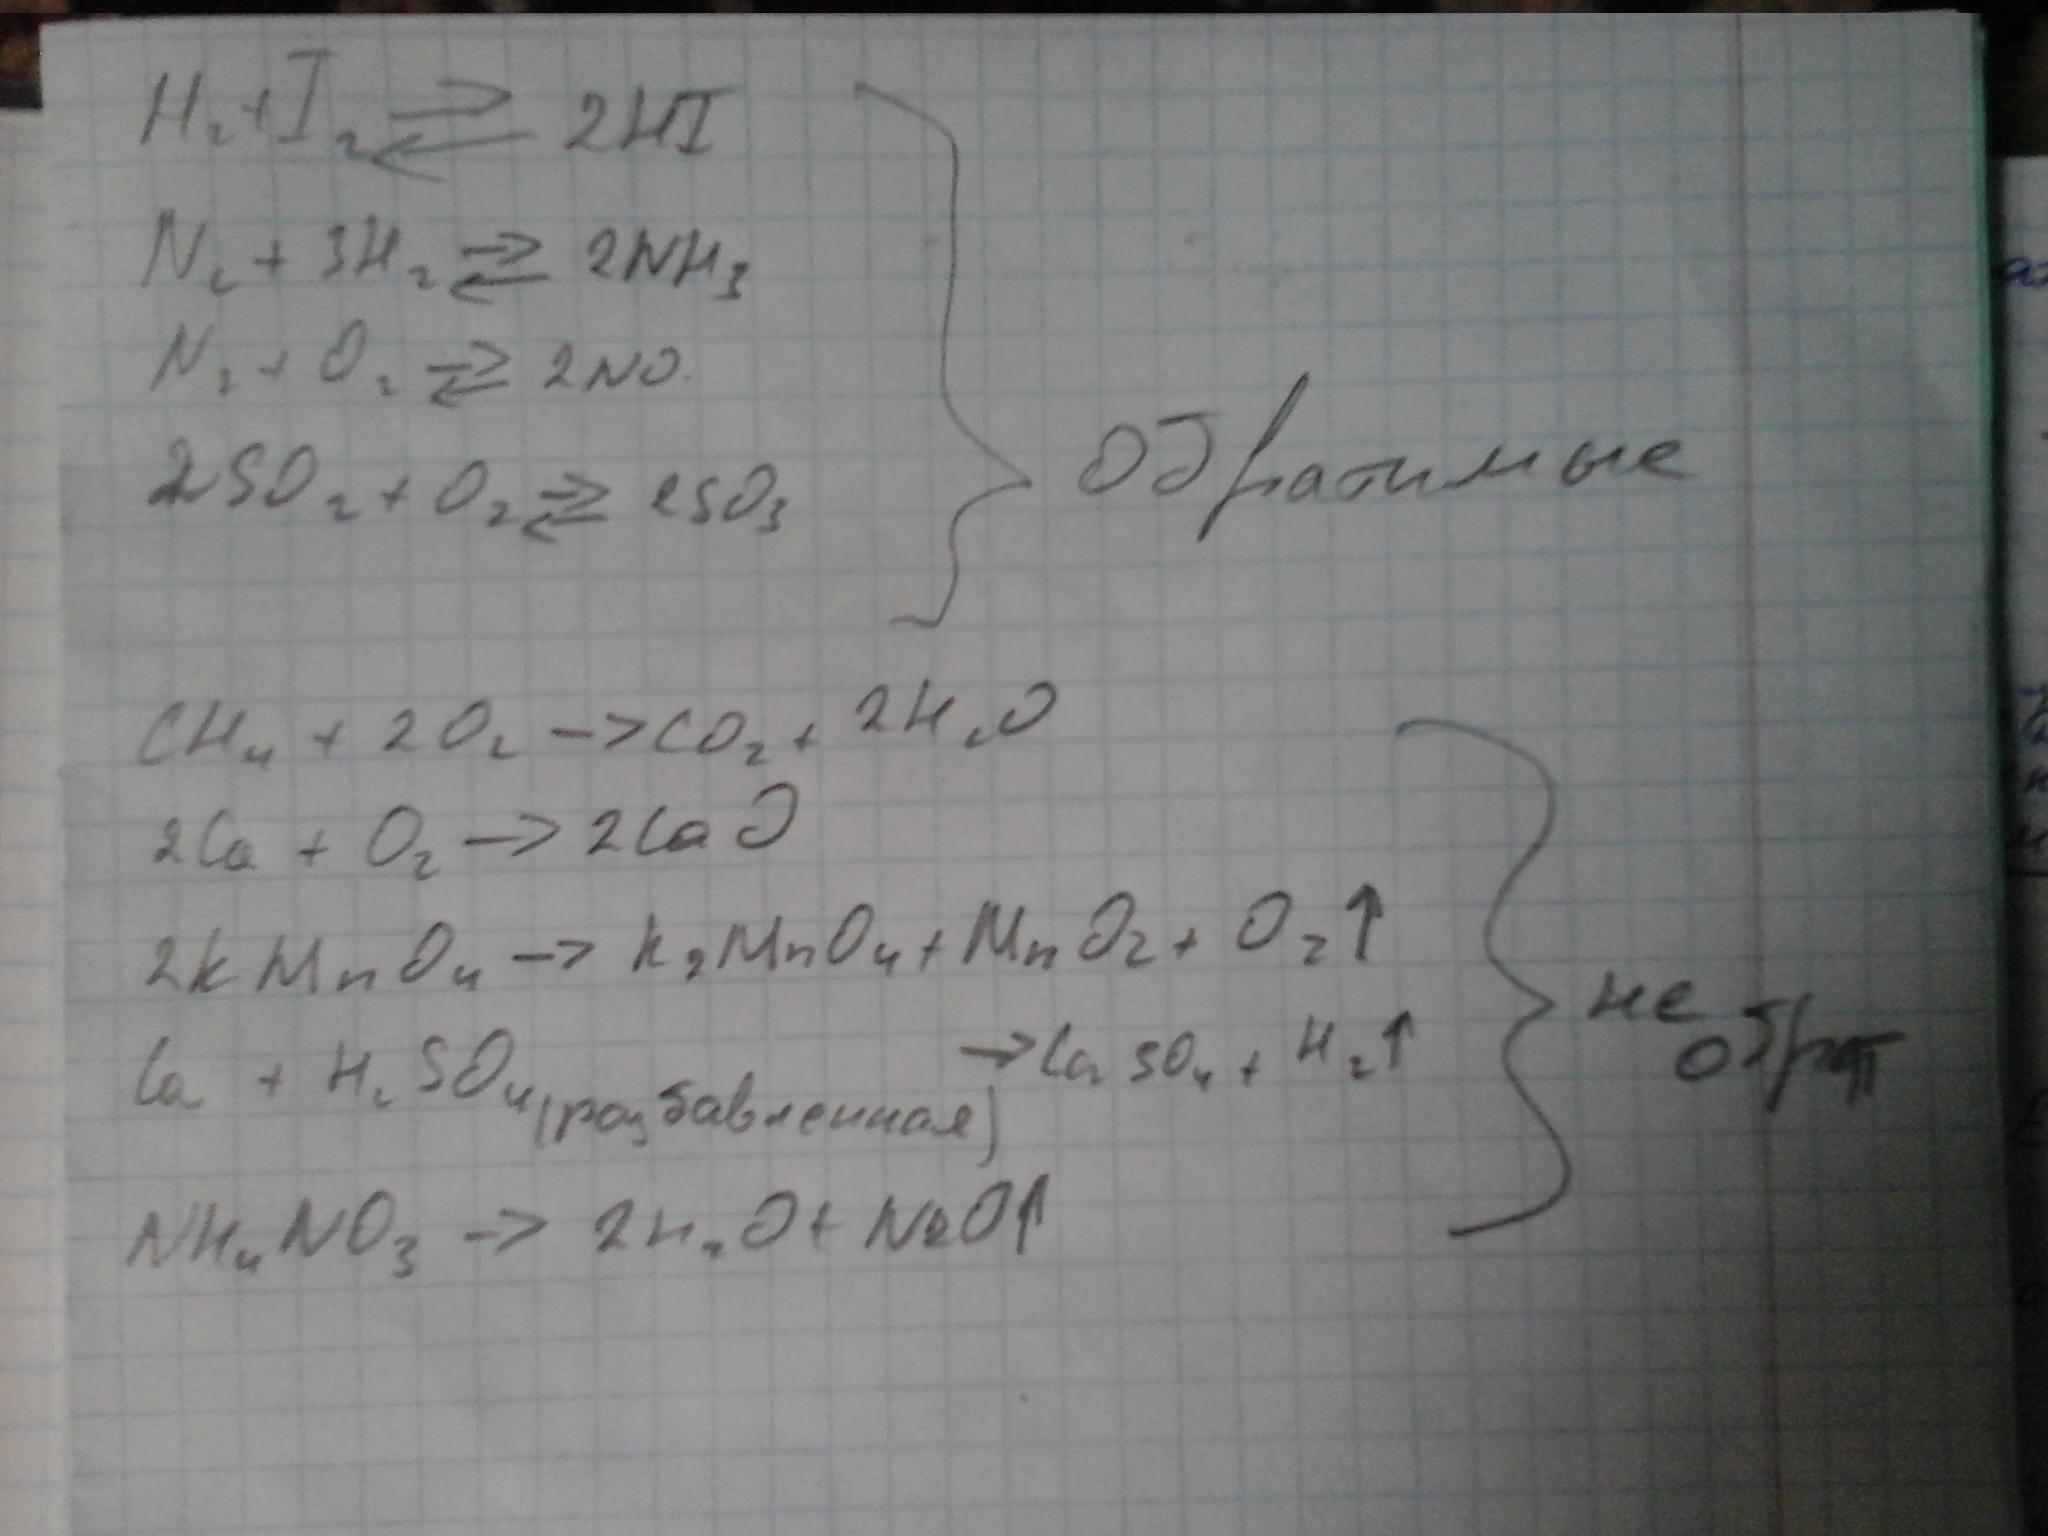 H₂+I₂ ⇄ 2HI
N₂ + 3H₂ ⇄ 2NH₃
N₂ + O₂ ⇄ 2NO
2SO₂ + O₂ ⇄ 2SO₃
Обратимые
CH₄ + 2O₂ → CO₂ + 2H₂O
2Ca + O₂ → 2CaO
2KMnO₄ → K₂MnO₄ + MnO₂ + O₂↑
Ca + H₂SO₄ (разбавленная) → CaSO₄ + H₂↑
не
обрат
NH₄NO₃ → 2H₂O + N₂O↑